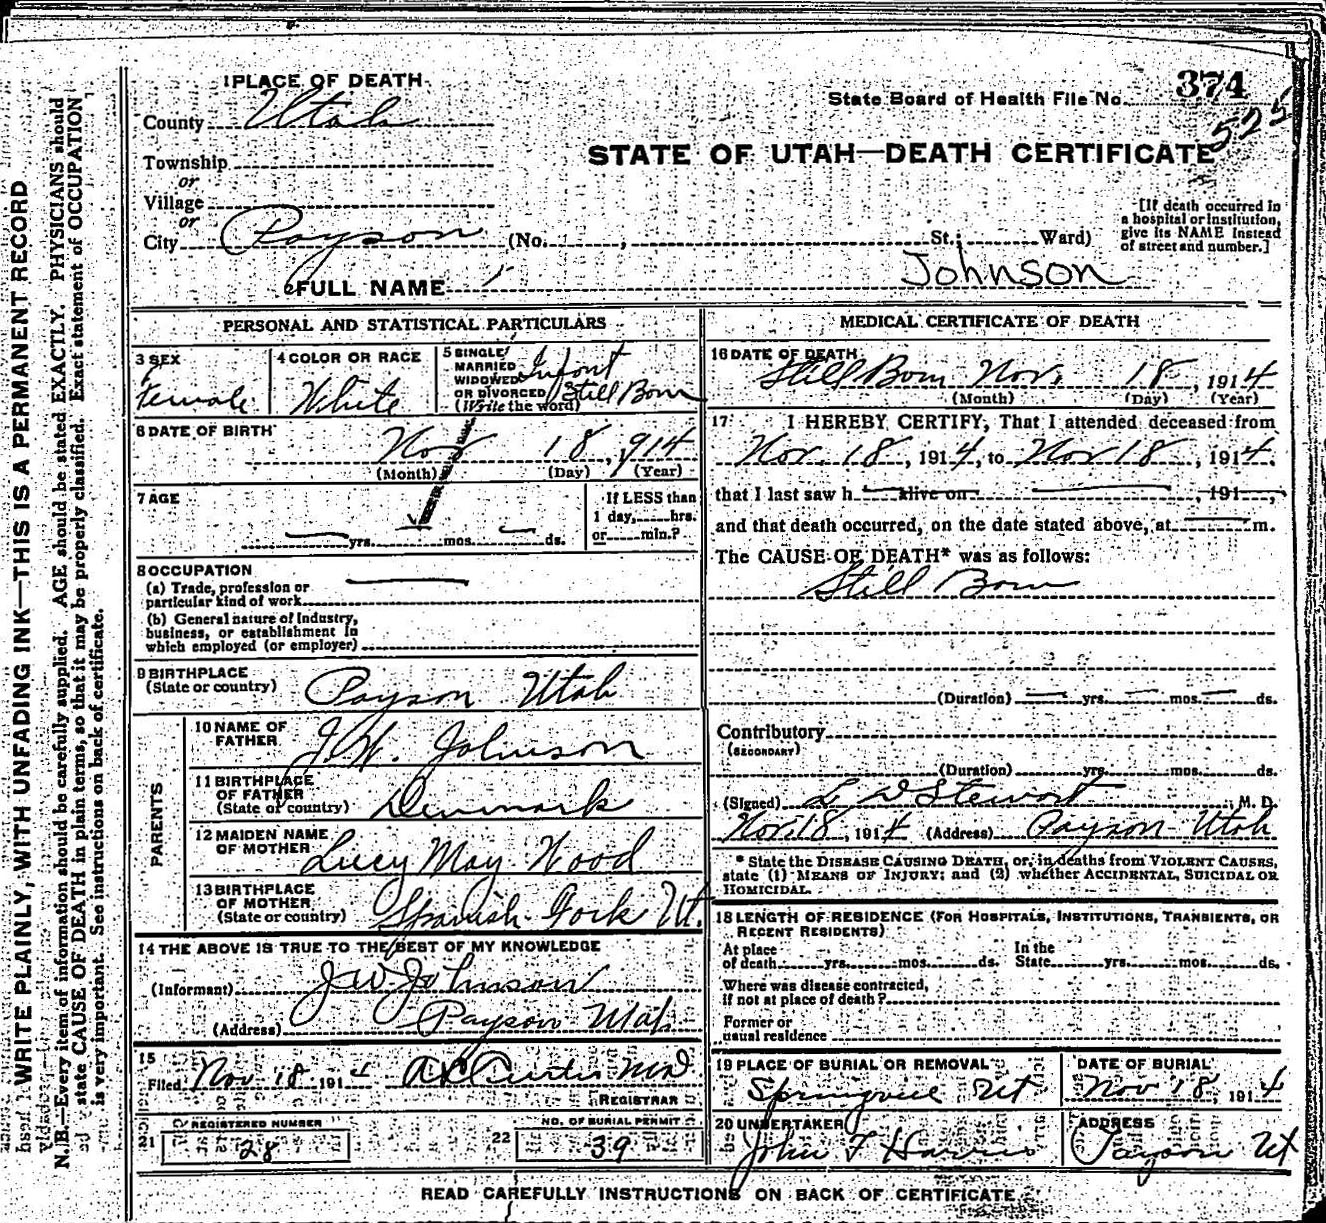 1 PLACE OF DEATH
State Board of Health File No. 374
525
County Utah
STATE OF UTAH—DEATH CERTIFICATE
Township
or
Village
or
City Payson (No. , St.; Ward)
[If death occurred in
a hospital or institution,
give its NAME instead
of street and number.]
2 FULL NAME Johnson
PERSONAL AND STATISTICAL PARTICULARS
3 SEX
Female
4 COLOR OR RACE
White
5 SINGLE
MARRIED
WIDOWED
OR DIVORCED
(Write the word)
Infant
Still Born
6 DATE OF BIRTH
Nov 18, 1914
(Month) (Day) (Year)
7 AGE
yrs. mos. ds.
If LESS than
1 day, hrs.
or min.?
8 OCCUPATION
(a) Trade, profession or
particular kind of work
(b) General nature of Industry,
business, or establishment in
which employed (or employer)
9 BIRTHPLACE
(State or country) Payson Utah
PARENTS
10 NAME OF
FATHER J.W. Johnson
11 BIRTHPLACE
OF FATHER
(State or country) Denmark
12 MAIDEN NAME
OF MOTHER Lucy May Wood
13 BIRTHPLACE
OF MOTHER
(State or country) Spanish Fork Ut.
14 THE ABOVE IS TRUE TO THE BEST OF MY KNOWLEDGE
(Informant) J W Johnson
(Address) Payson Utah
15
Filed Nov 18 1914 Curtis
REGISTRAR
21 REGISTERED NUMBER
28
22 NO. OF BURIAL PERMIT
39
MEDICAL CERTIFICATE OF DEATH
16 DATE OF DEATH
Still Born Nov. 18, 1914
(Month) (Day) (Year)
17 I HEREBY CERTIFY, That I attended deceased from
Nov. 18, 1914, to Nov 18, 1914,
that I last saw h alive on , 191 ,
and that death occurred, on the date stated above, at m.
The CAUSE OF DEATH* was as follows:
Still Born
(Duration) yrs. mos. ds.
Contributory
(SECONDARY)
(Duration) yrs. mos. ds.
(Signed) L D Stewart, M. D.
Nov. 18, 1914 (Address) Payson Utah
* State the DISEASE CAUSING DEATH, or, in deaths from VIOLENT CAUSES,
state (1) MEANS OF INJURY; and (2) whether ACCIDENTAL, SUICIDAL OR
HOMICIDAL.
18 LENGTH OF RESIDENCE (FOR HOSPITALS, INSTITUTIONS, TRANSIENTS, OR
RECENT RESIDENTS)
At place
of death yrs. mos. ds.
In the
State yrs. mos. ds.
Where was disease contracted,
if not at place of death?
Former or
usual residence
19 PLACE OF BURIAL OR REMOVAL
Springville Ut
DATE OF BURIAL
Nov 18, 1914
20 UNDERTAKER
John T Harris
ADDRESS
Payson Ut
READ CAREFULLY INSTRUCTIONS ON BACK OF CERTIFICATE
WRITE PLAINLY, WITH UNFADING INK—THIS IS A PERMANENT RECORD
N. B.—Every item of information should be carefully supplied. AGE should be stated EXACTLY. PHYSICIANS should
state CAUSE OF DEATH in plain terms, so that it may be properly classified. Exact statement of OCCUPATION
is very important. See instructions on back of certificate.